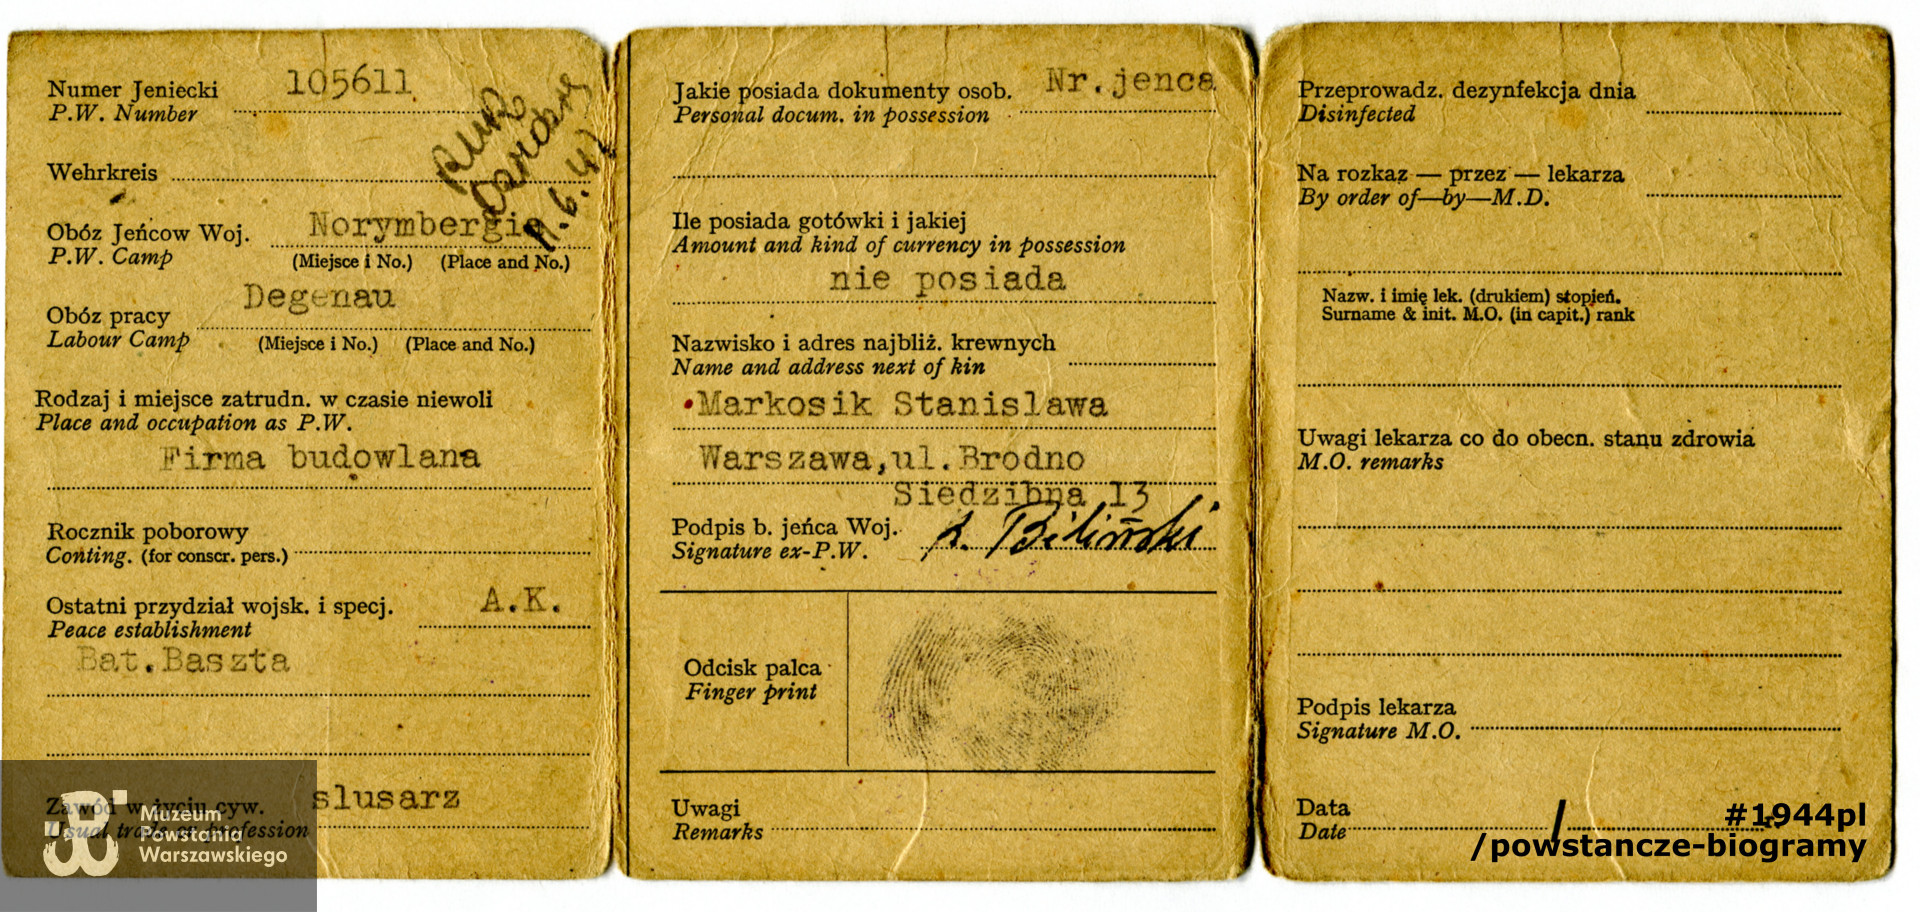 Numer Jeniecki 105611
P.W. Number
Wehrkreis
Obóz Jeńcow Woj. Norymbergia
P.W. Camp (Miejsce i No.) (Place and No.)
Degenau
Obóz pracy
Labour Camp (Miejsce i No.) (Place and No.)
Rodzaj i miejsce zatrudn. w czasie niewoli
Place and occupation as P.W.
Firma budowlana
Rocznik poborowy
Conting. (for conscr. pers.)
Ostatni przydział wojsk. i specj. A.K.
Peace establishment
Bat.Baszta
Zawód w życiu cyw. slusarz
Usual trade or profession
Muzeum
Powstania
Warszawskiego
Jakie posiada dokumenty osob. Nr.jenca
Personal docum. in possession
Ile posiada gotówki i jakiej
Amount and kind of currency in possession
nie posiada
Nazwisko i adres najbliż. krewnych
Name and address next of kin
Markosik Stanislawa
Warszawa,ul.Brodno
Siedzibna 13
Podpis b. jeńca Woj. Biliński
Signature ex-P.W.
Odcisk palca
Finger print
Uwagi
Remarks
Przeprowadz. dezynfekcja dnia
Disinfected
Na rozkaz — przez — lekarza
By order of—by—M.D.
Nazw. i imię lek. (drukiem) stopień.
Surname & init. M.O. (in capit.) rank
Uwagi lekarza co do obecn. stanu zdrowia
M.O. remarks
Podpis lekarza
Signature M.O.
Data
Date
#1944pl
/powstancze-biogramy